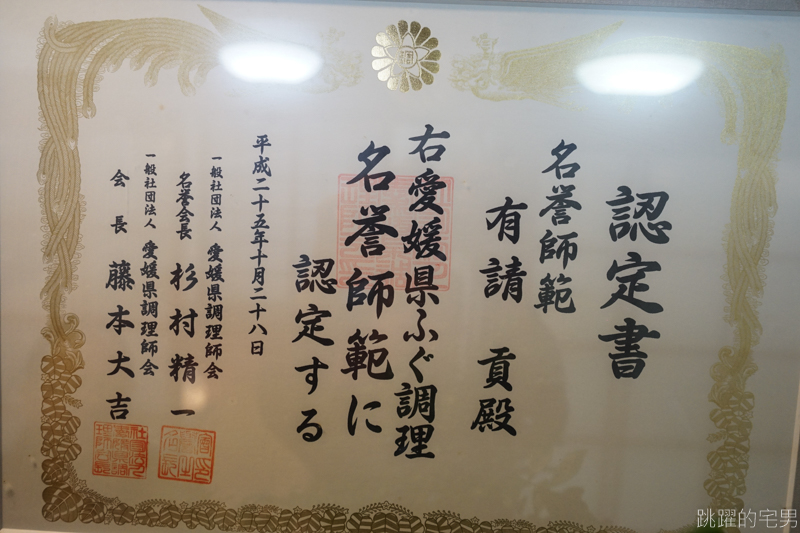 認定書
名誉師範
有請 貢殿
右愛媛県ふぐ調理
名誉師範に
認定する
平成二十五年十月二十八日
一般社団法人 愛媛県調理師会
名誉会長 杉村精一
一般社団法人 愛媛県調理師会
会長 藤本大吉
跳躍的宅男